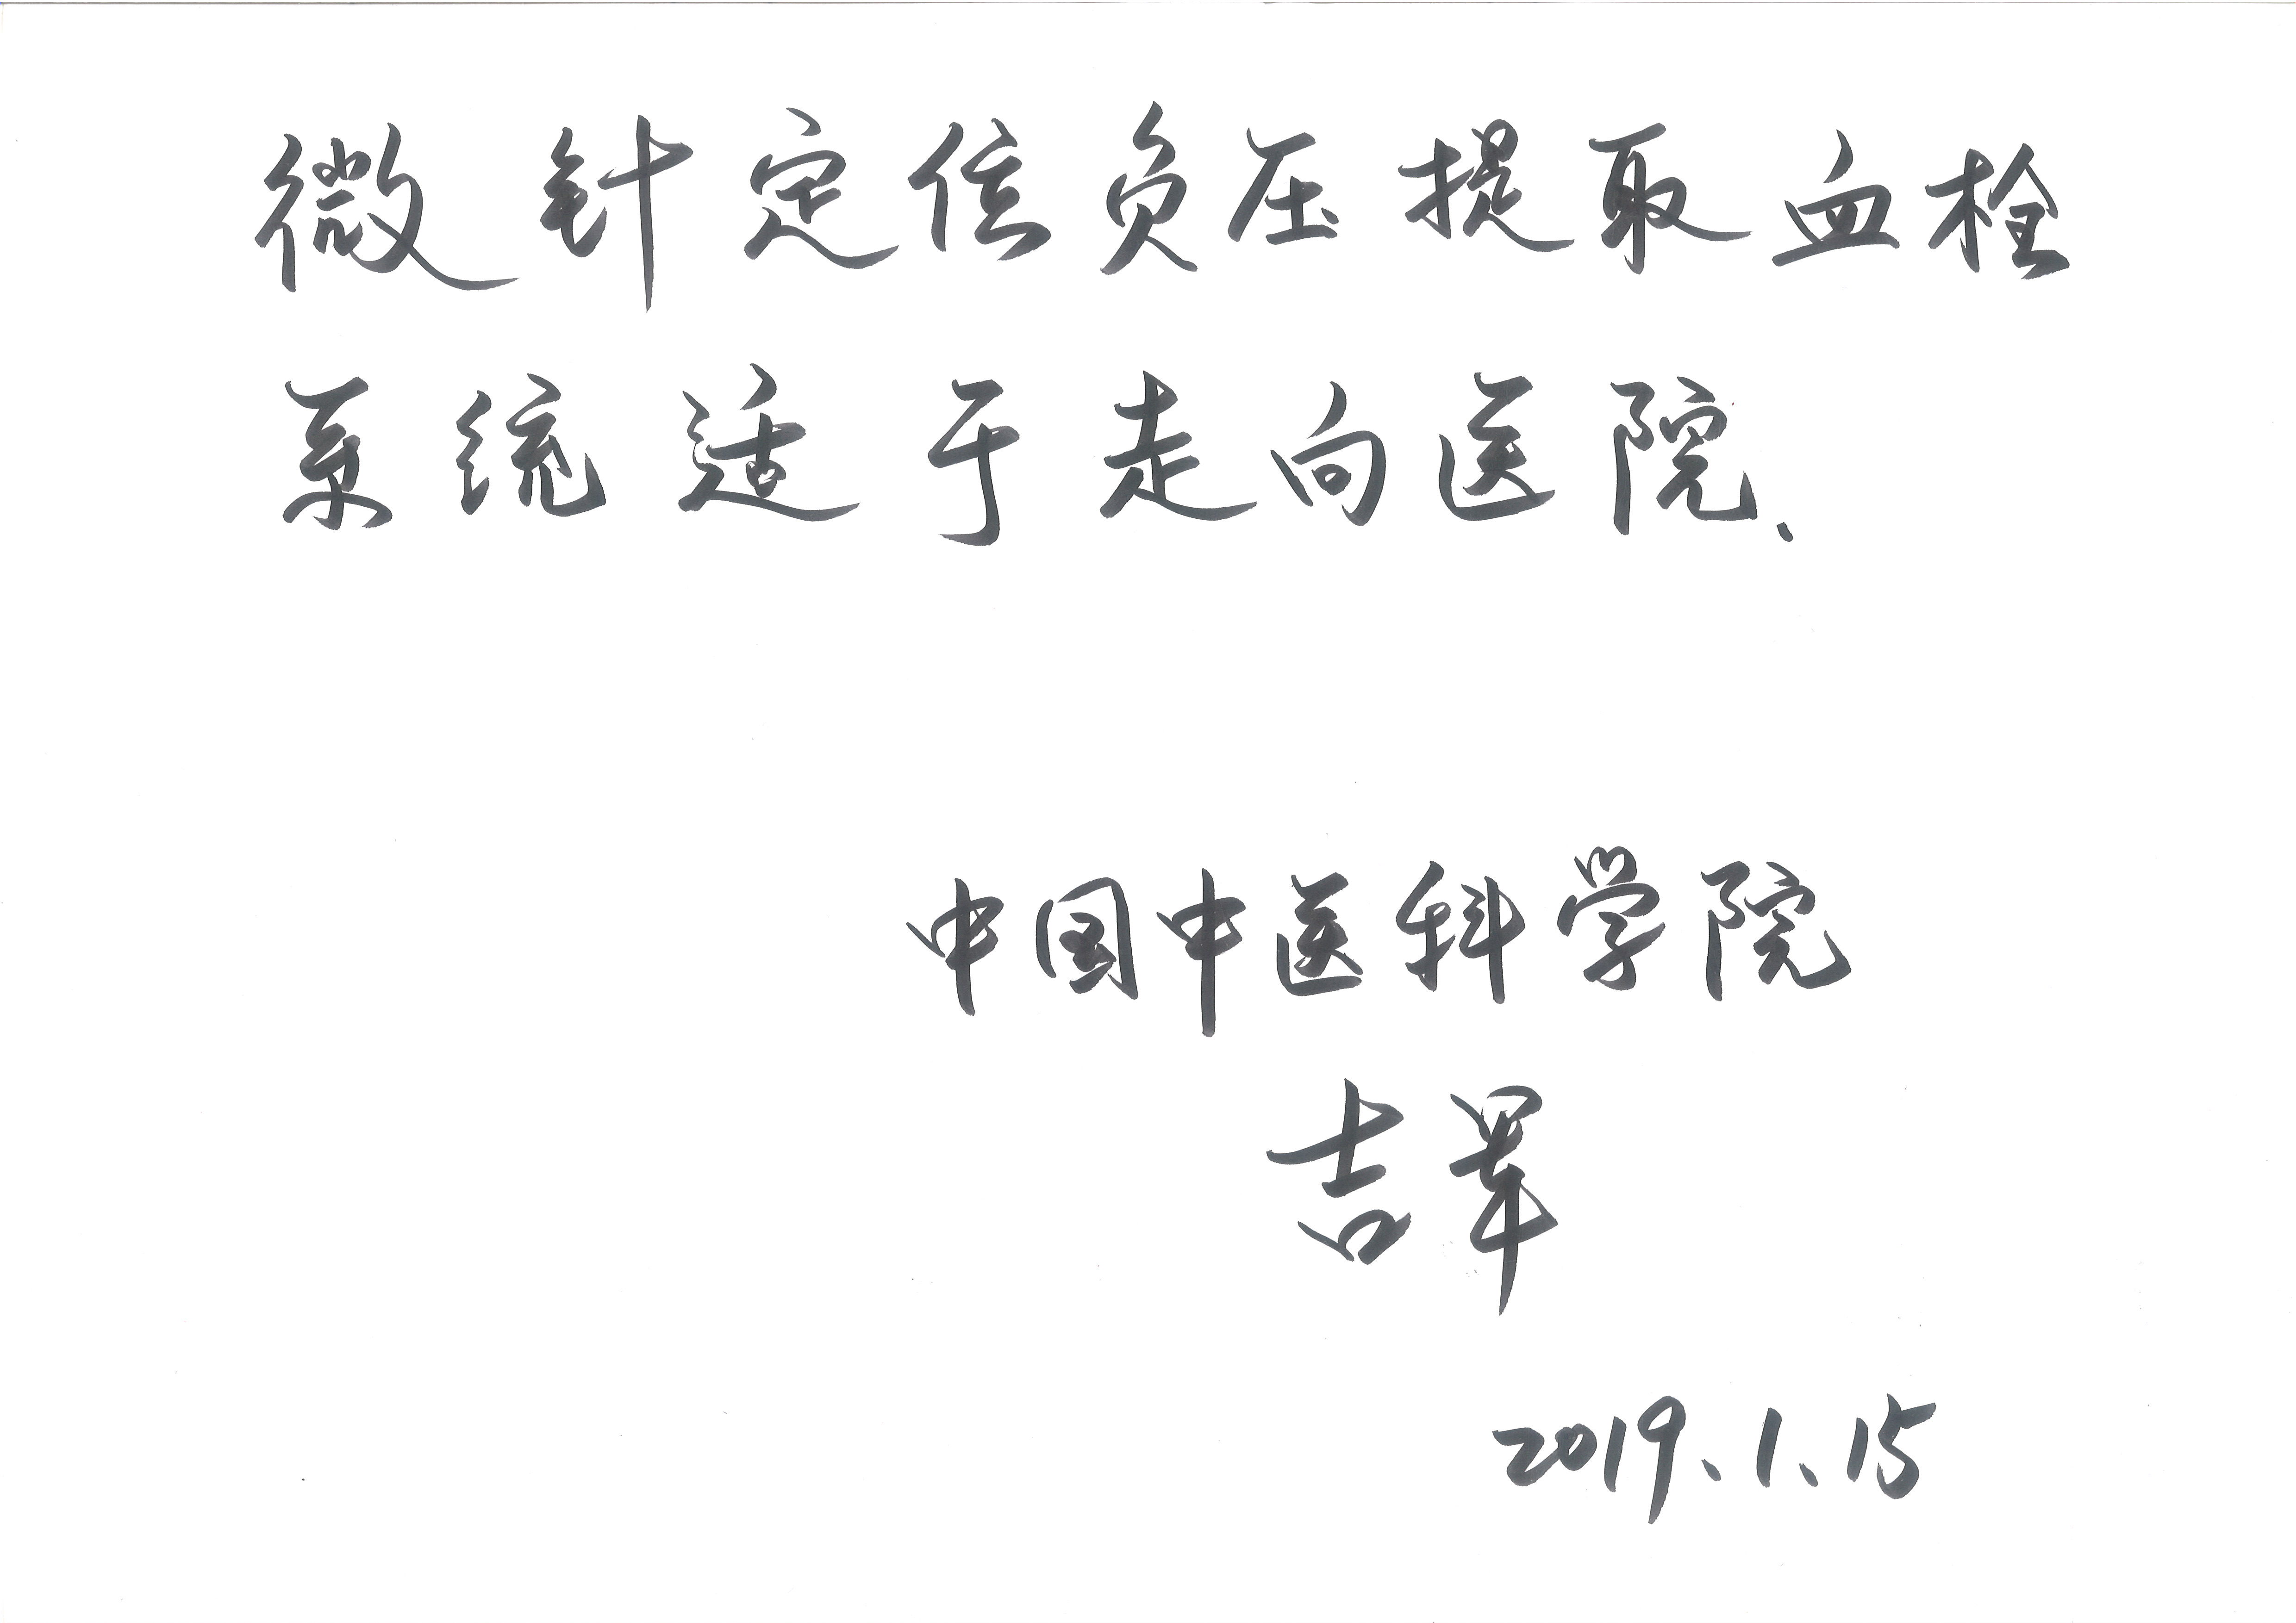 微针定位负压提取血栓
系统适于走向医院.
中国中医科学院
吉军
2019.1.15